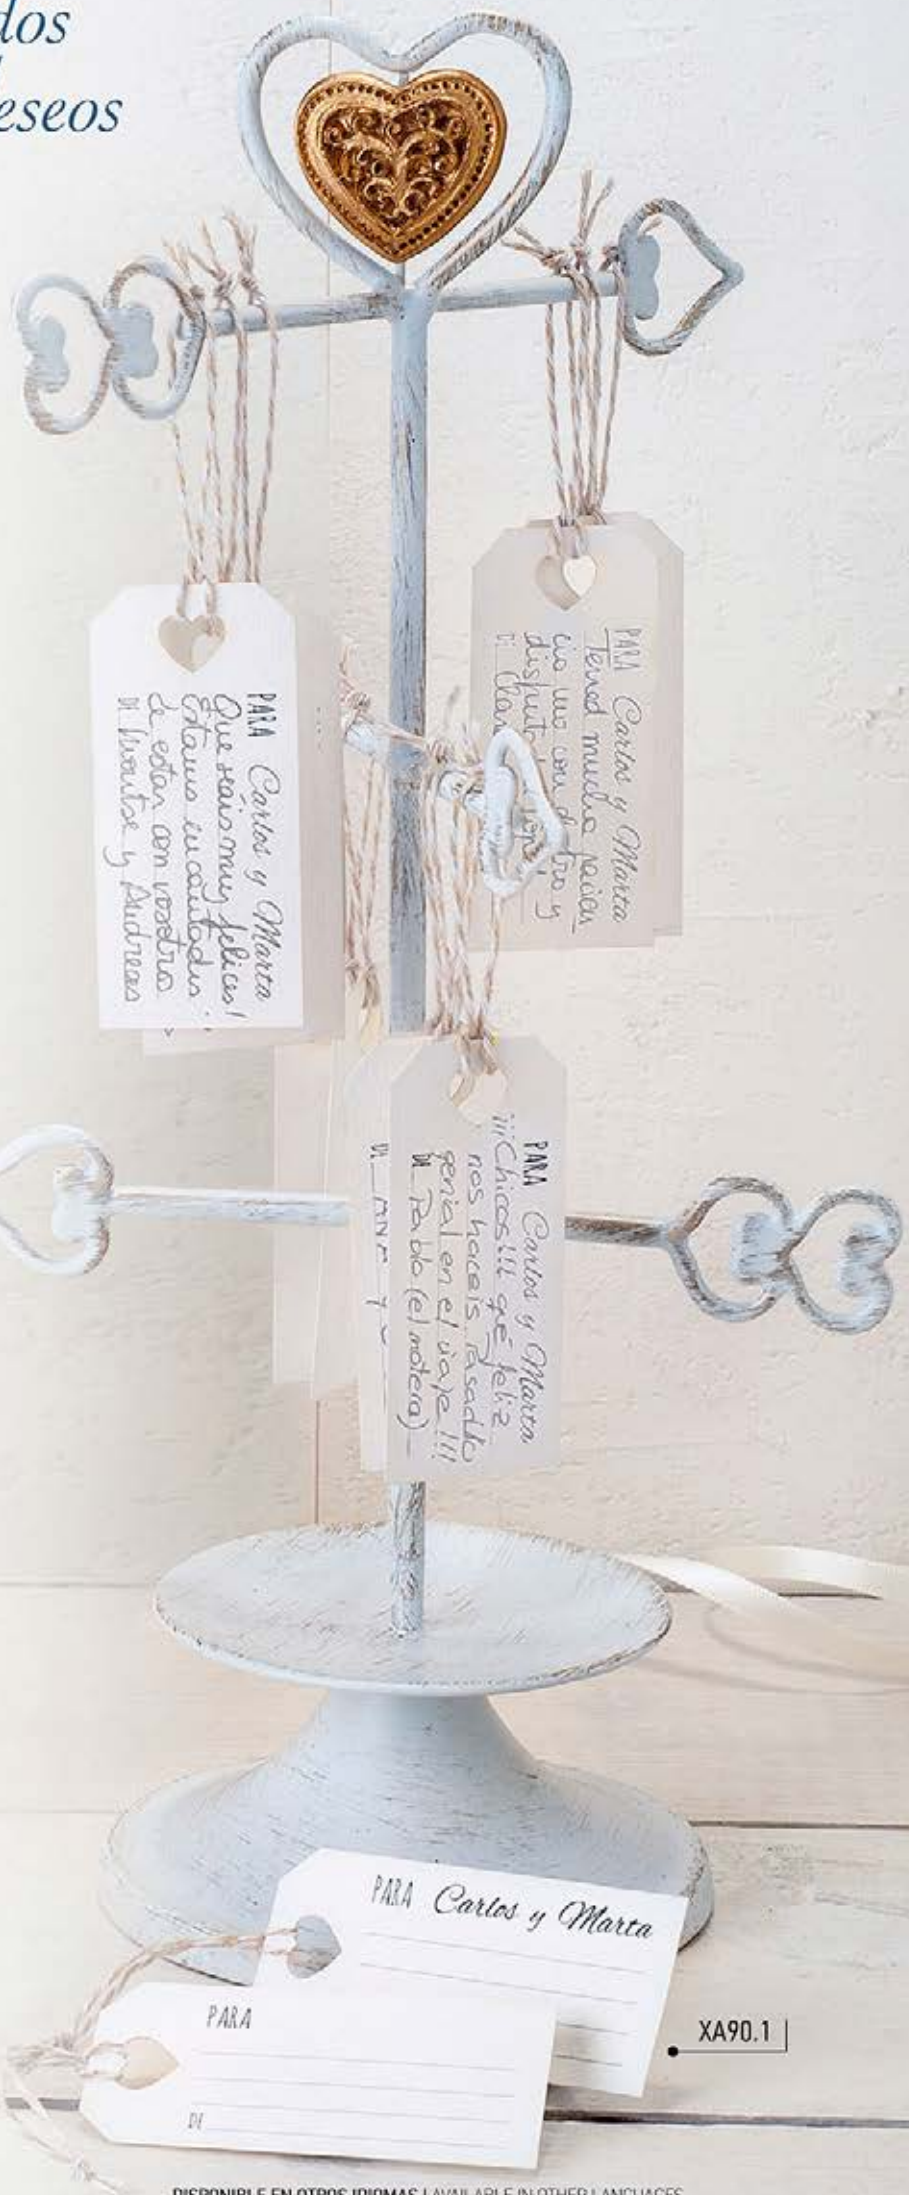 dos
eseos
PARA Carlos y Marta
Que seais muy felices!
Estamos encantados
de estar con vosotros
DE Montse y Andreas
PARA Carlos y Marta
Tened mucha pacien
cia uno con otro y
disfrutad
DE
PARA Carlos y Marta
¡¡¡Chicos!!! que feliz
nos haceis. Pasadlo
genial en el viaje!!!
DE Pablo (el motero)
DE
PARA Carlos y Marta
PARA
DE
XA90.1
DISPONIBLE EN OTROS IDIOMAS | AVAILABLE IN OTHER LANGUAGES